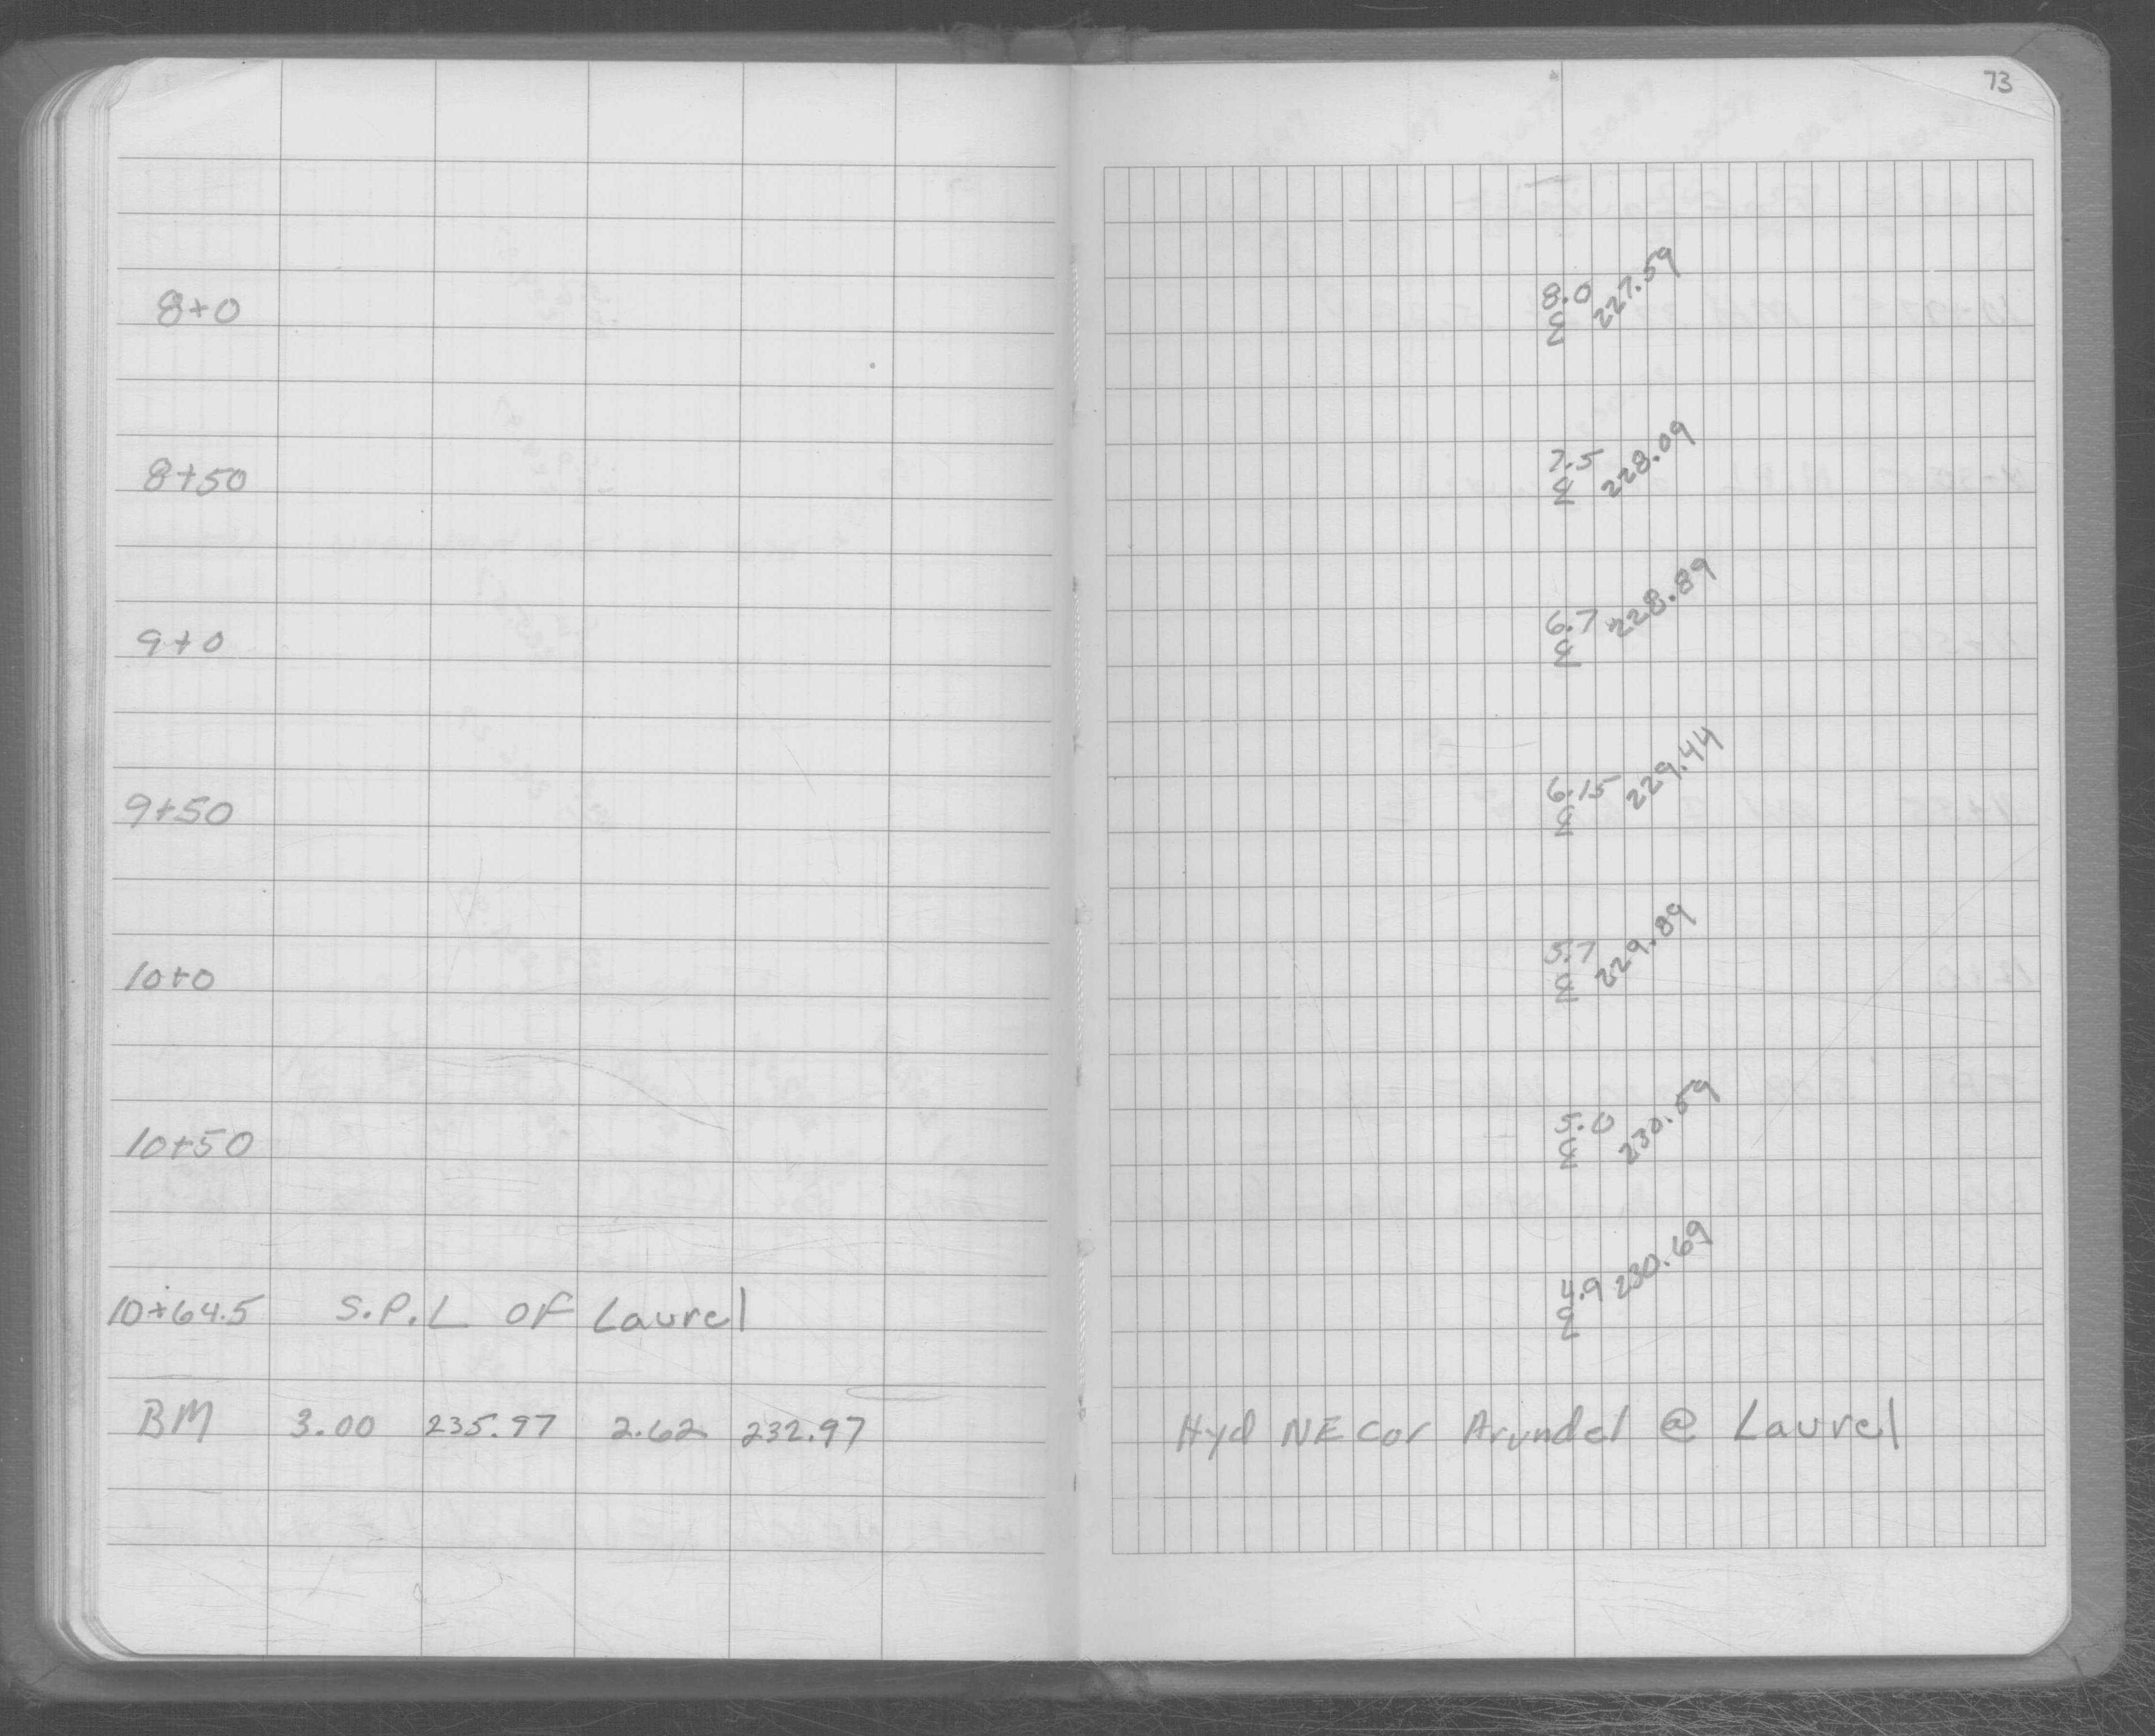 73
8+0 8.0 227.59
℄
8+50 7.5 228.09
℄
9+0 6.7 228.89
℄
9+50 6.15 229.44
℄
10+0 5.7 229.89
℄
10+50 5.0 230.59
℄
10+64.5 S.P.L OF Laurel 4.9 230.69
℄
BM 3.00 235.97 2.62 232.97 Hyd NE Cor Arundel @ Laurel